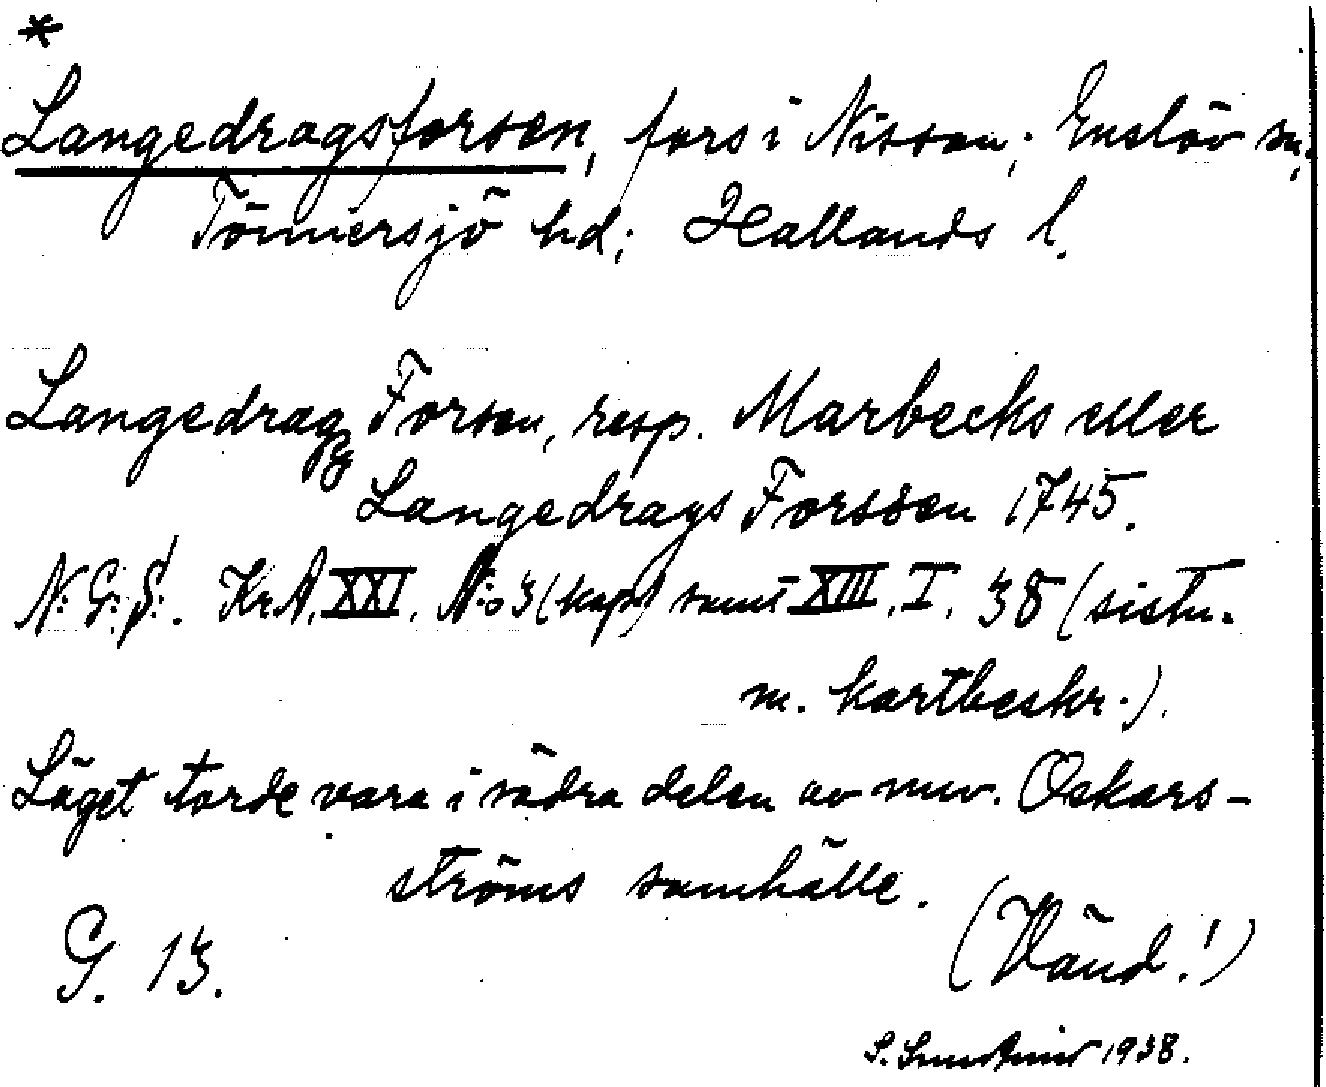 *
Langedragsforsen, fors i Nissan; Enslöv sn,
Tönnersjö hd; Hallands l.
Langedragz Forsen, resp. Marbecks eller
Langedrags Forssen 1745.
N:G:S!. Kr.A. XXI. N:o 3 (kap) samt XIII. I. 38 (sistn.
m. kartbeskr.).
Läget torde vara i södra delen av nuv. Oskars-
ströms samhälle.
(Vänd!)
G. 13.
S. 1938.